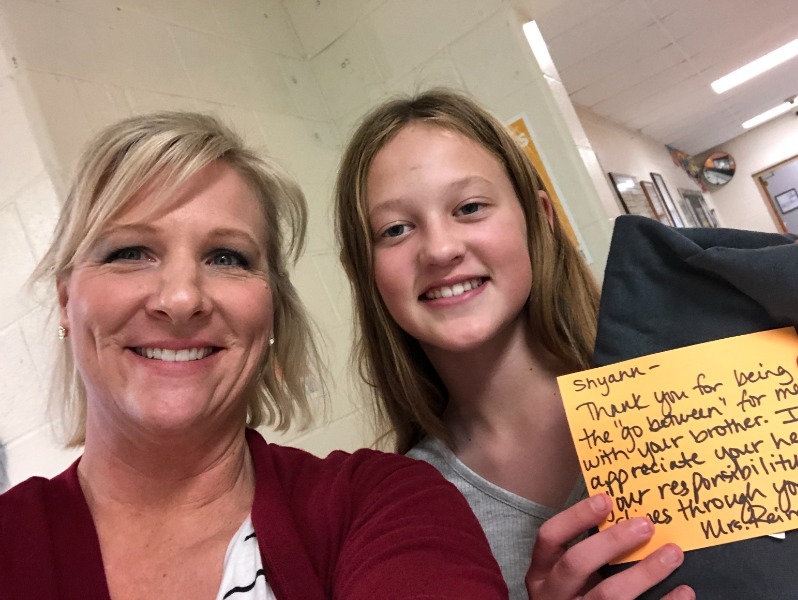 Shyann-
Thank you for being
the "go between" for me
with your brother. I
appreciate your
your responsibility
shines through
Mrs.